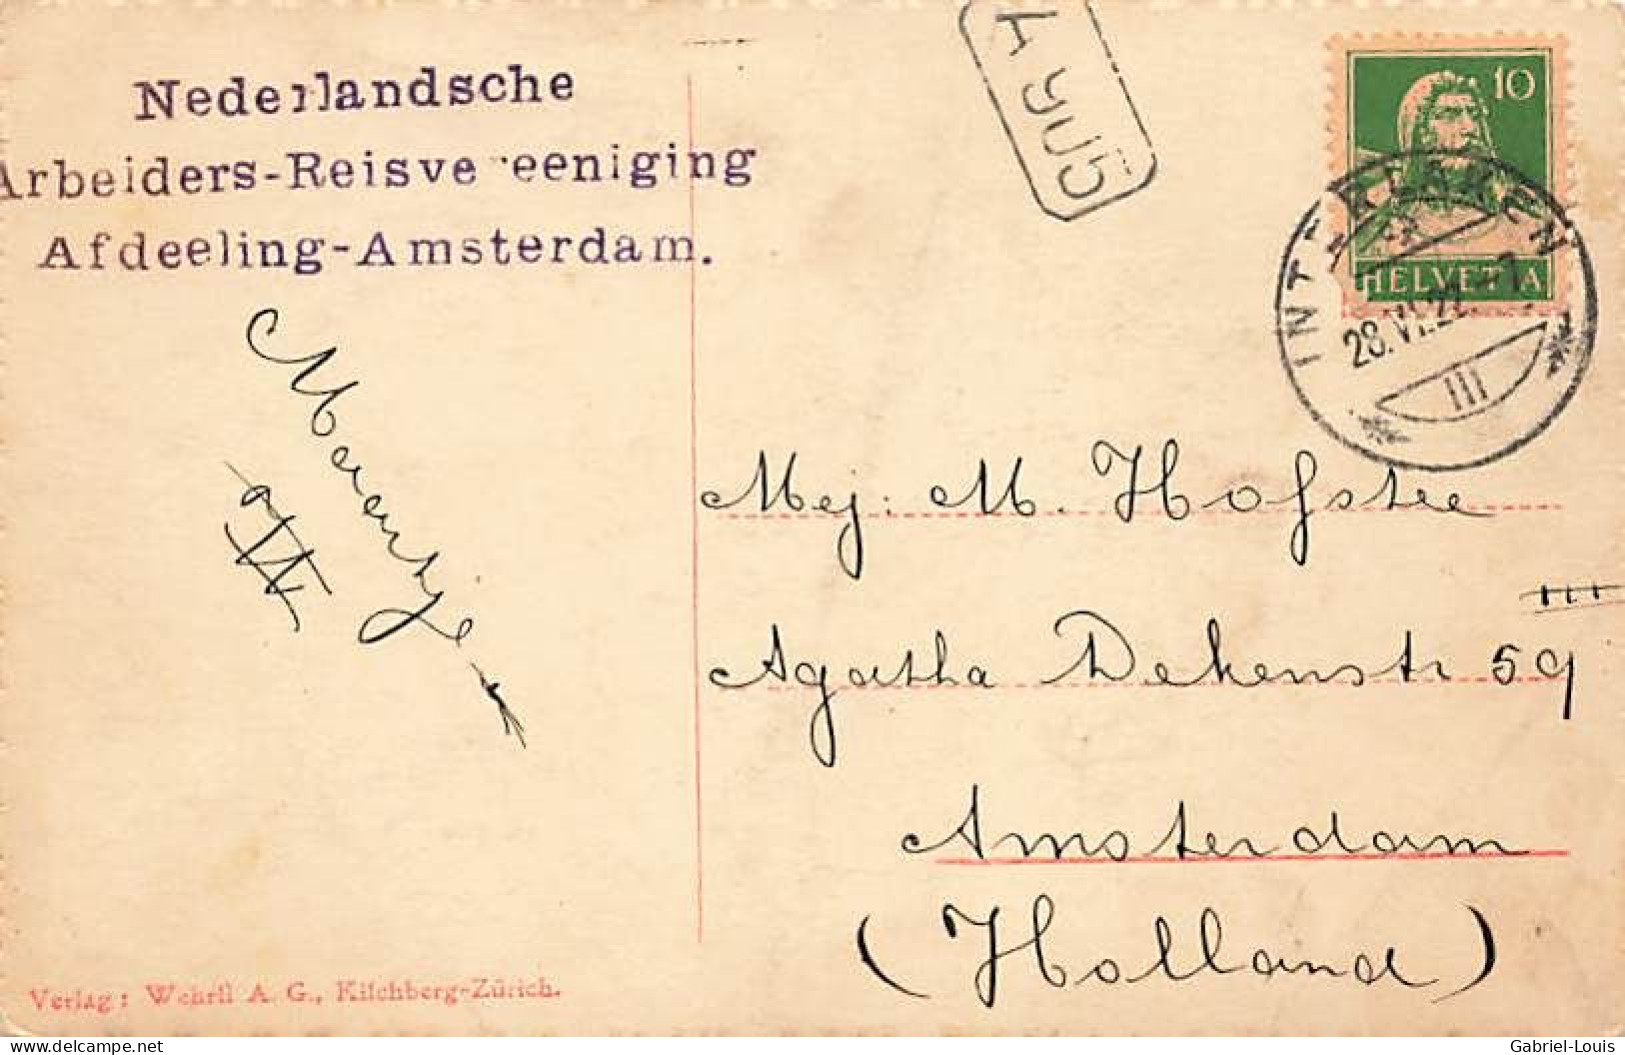 Nederlandsche
Arbeiders-Reisvereeniging
Afdeeling-Amsterdam.
10
HELVETIA
INTERLAKEN
28.VI.
III
Mej: M. Hofstee
Agatha Dekenstr 59
Amsterdam
(Holland)
Verlag: Wehrli A. G., Kilchberg-Zürich.
delcampe.net
Gabriel-Louis